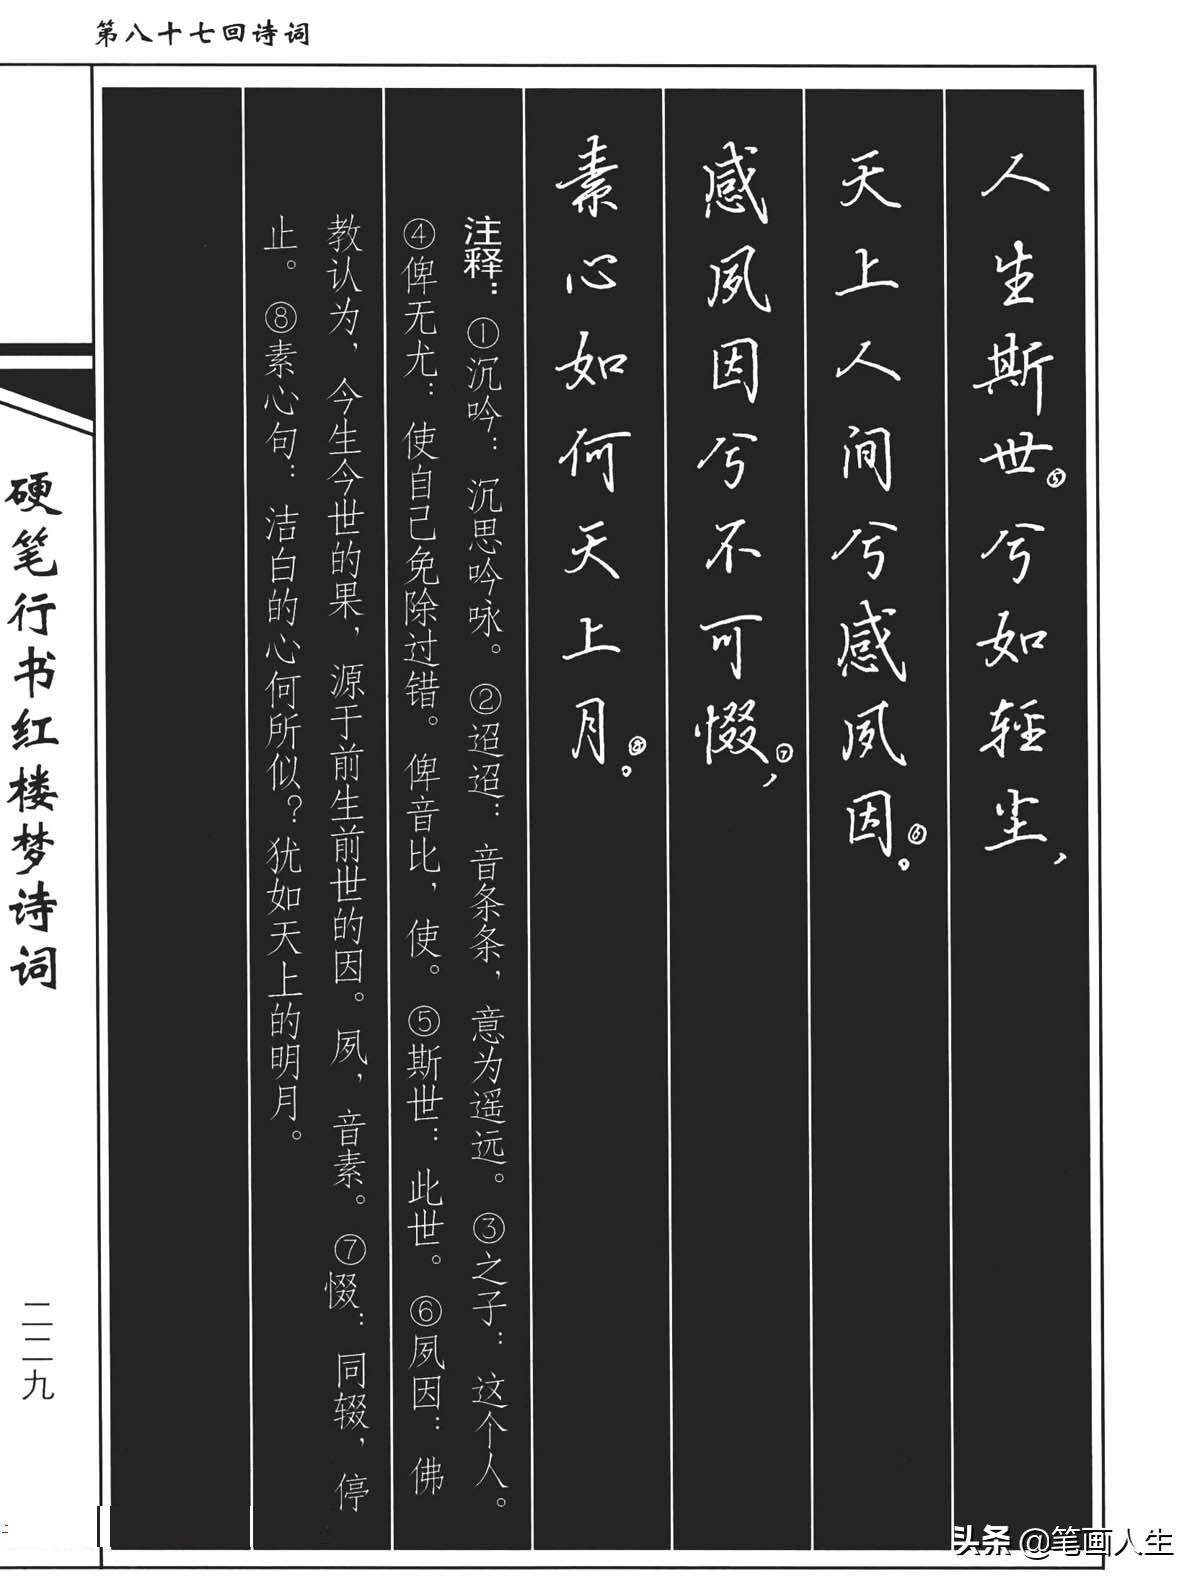 第八十七回诗词
人生斯世⑤兮如輕尘，
天上人间兮感夙因⑥。
感夙因兮不可惙⑦，
素心如何天上月⑧。
注释：①沉吟：沉思吟咏。②迢迢：音条条，意为遥远。③之子：这个人。
④俾无尤：使自己免除过错。俾音比，使。⑤斯世：此世。⑥夙因：佛
教认为，今生今世的果，源于前生前世的因。夙，音素。⑦惙：同辍，停
止。⑧素心句：洁白的心何所似？犹如天上的明月。
硬笔行书红楼梦诗词
二二九
头条 @笔画人生